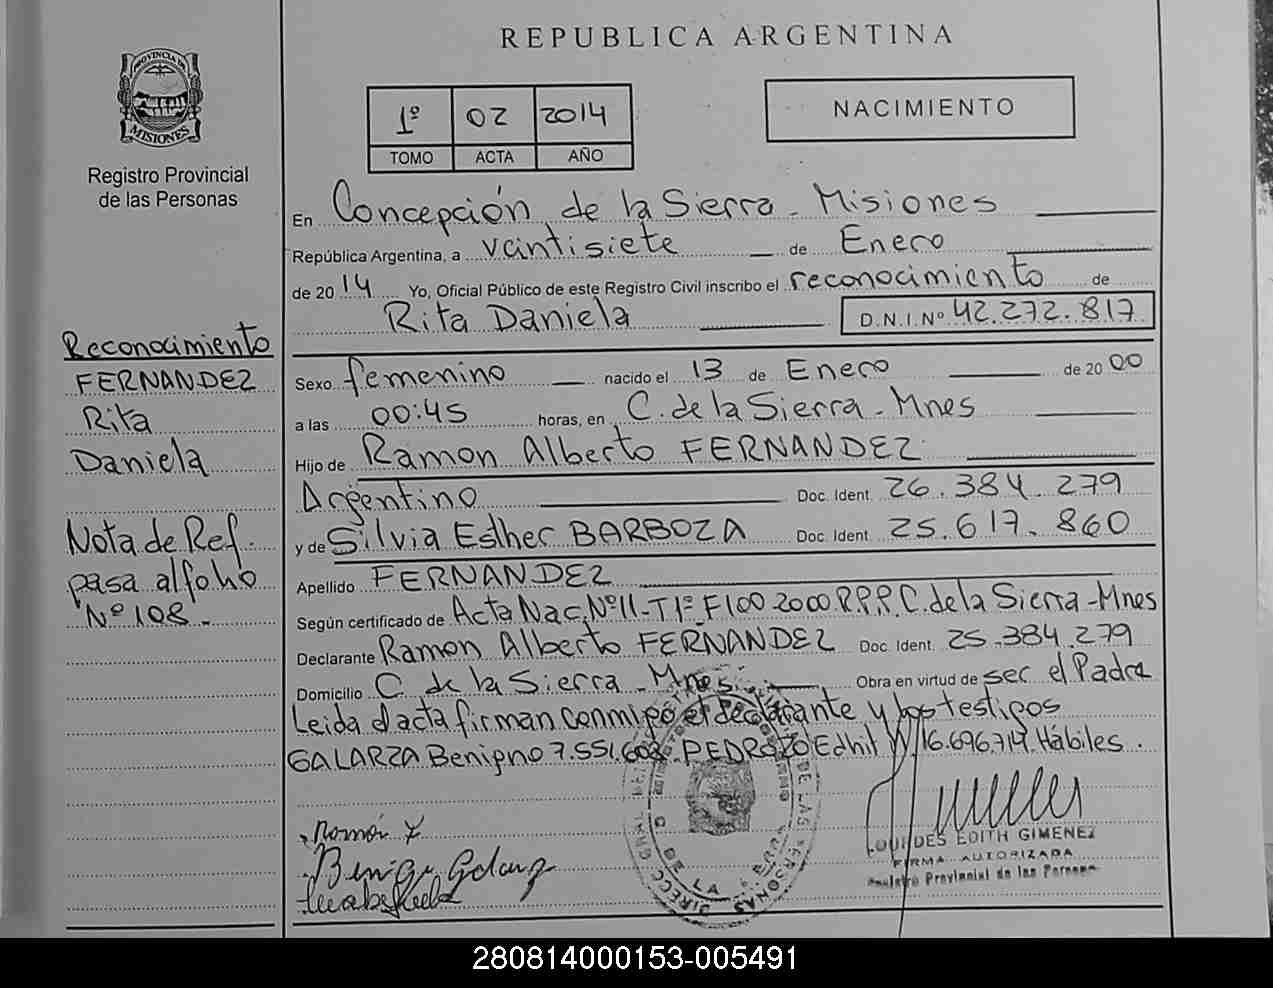 REPUBLICA ARGENTINA
PROVINCIA DE
MISIONES
Registro Provincial
de las Personas
1º 02 2014
TOMO ACTA AÑO
NACIMIENTO
En Concepción de la Sierra - Misiones
República Argentina, a veintisiete de Enero
de 2014 Yo, Oficial Público de este Registro Civil inscribo el reconocimiento de
Rita Daniela D.N.I.Nº 42.272.817
Sexo femenino nacido el 13 de Enero de 2000
a las 00:45 horas, en C. de la Sierra - Mnes
Hijo de Ramon Alberto FERNANDEZ
Argentino Doc. Ident. 26.384.279
y de Silvia Esther BARBOZA Doc. Ident. 25.617.860
Apellido FERNANDEZ
Según certificado de Acta Nac. Nº 11 - T1º F100-2000 R.P.P. C. de la Sierra - Mnes
Declarante Ramon Alberto FERNANDEZ Doc. Ident. 25.384.279
Domicilio C. de la Sierra - Mnes. Obra en virtud de ser el Padre
Leida el acta firman conmigo el declarante y los testigos
GALARZA Benigno 7.551.602 - PEDROZO Edhit 16.696.714 Hábiles.
Reconocimiento
FERNANDEZ
Rita
Daniela
Nota de Ref.
pasa al folio
Nº 108.
Ramón
LOURDES EDITH GIMENEZ
FIRMA AUTORIZADA
Registro Provincial de las Personas
DE LAS PERSONAS
C. DE LA
280814000153-005491